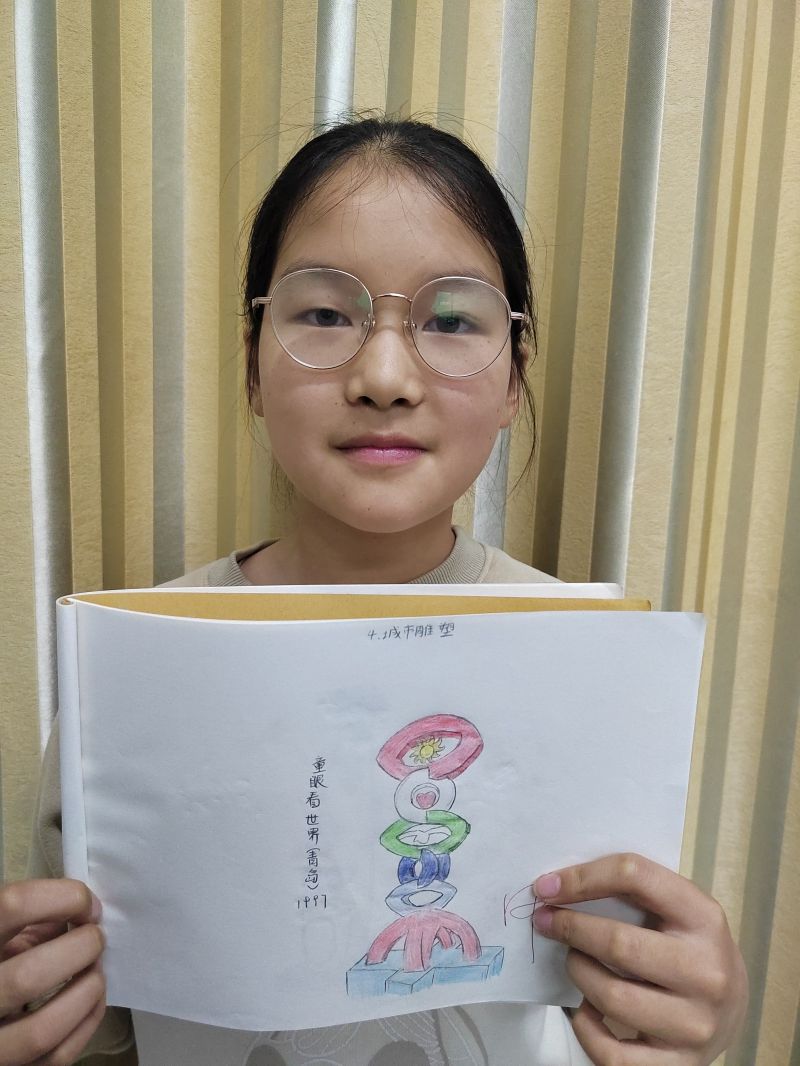 4.城市雕塑
童眼看世界(青岛)
1997